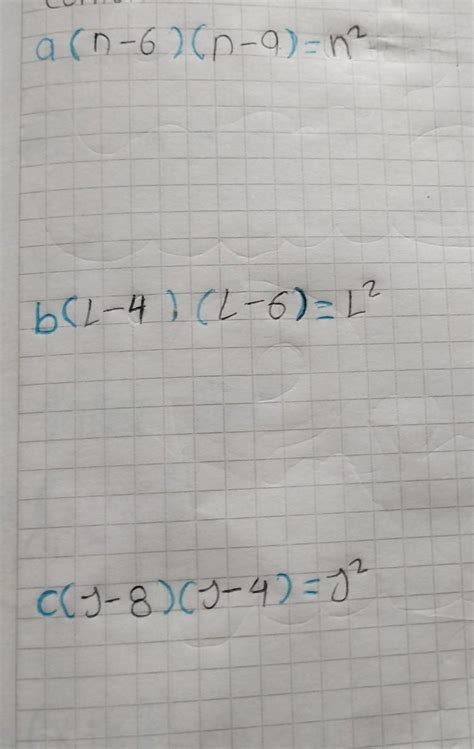 a(n-6)(n-9)=n²
b(L-4)(L-6)=L²
c(y-8)(y-4)=y²